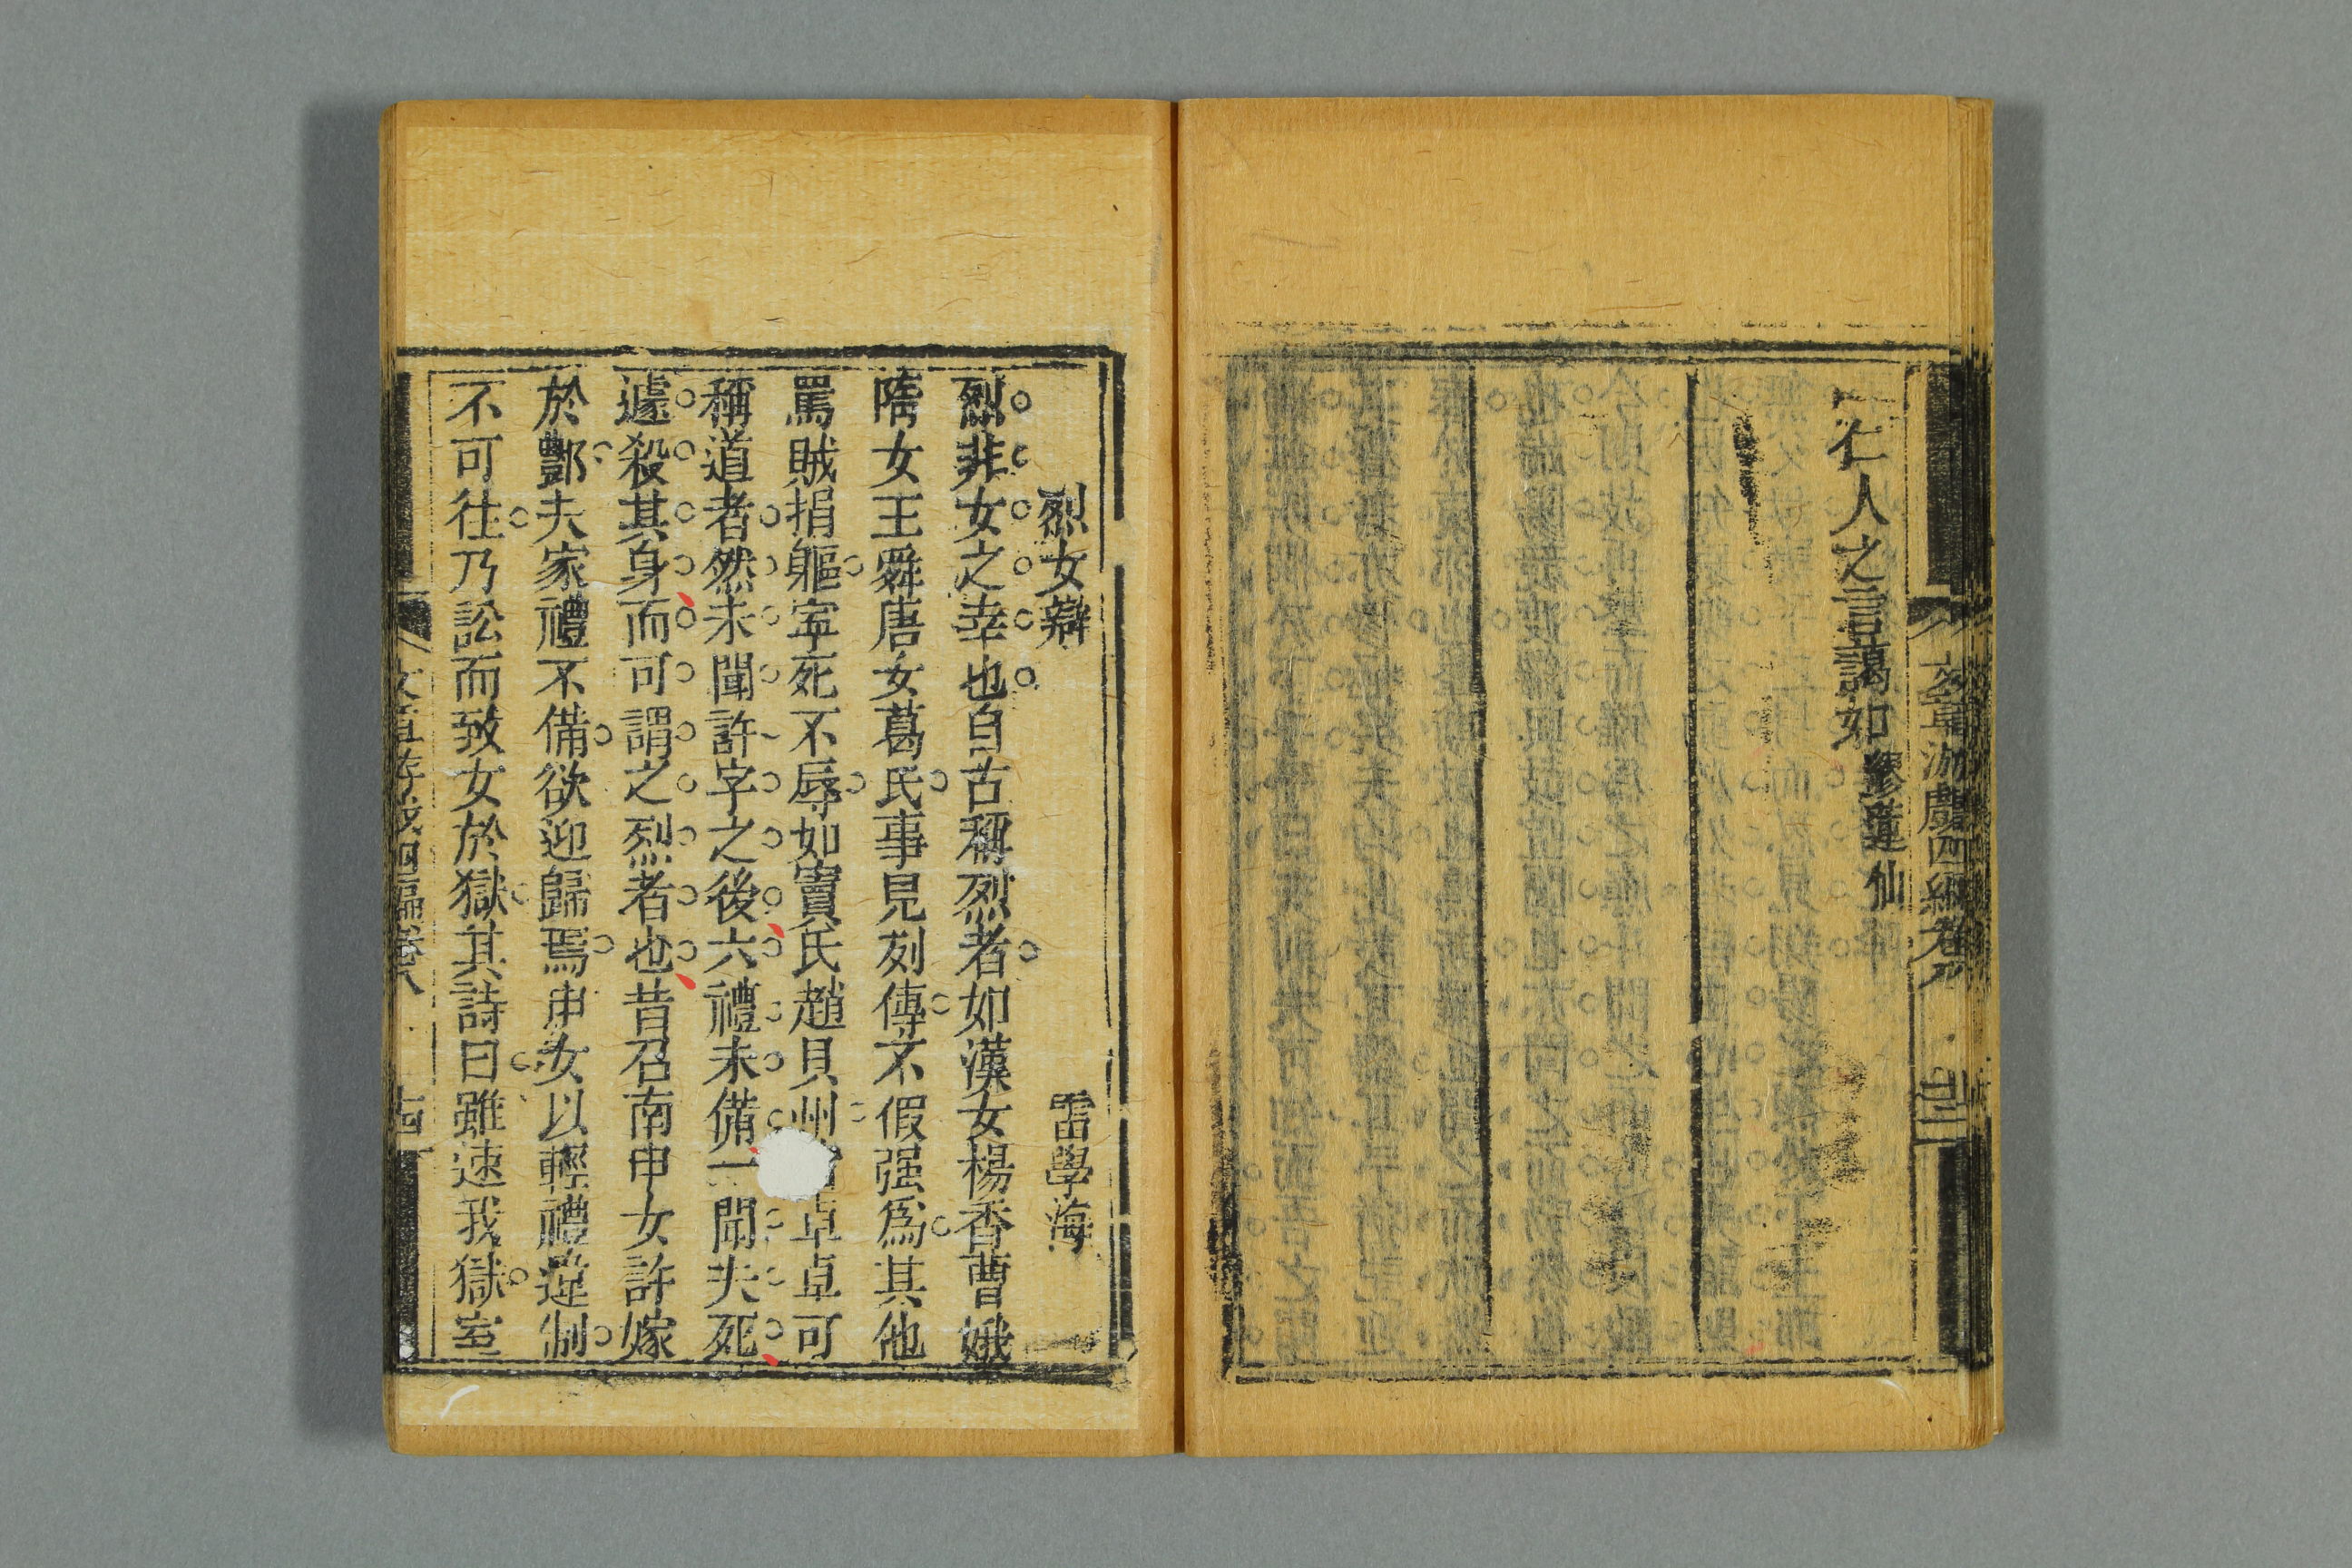 仁人之言藹如 繆蓮仙
文章游戲四編卷八
烈女辯 雷學海
烈非女之幸也自古稱烈者如漢女楊香曹娥
隋女王舜唐女葛氏事見列傳不假强爲其他
罵賊捐軀寜死不辱如竇氏趙貝州 卓卓可
稱道者然未聞許字之後六禮未備一聞夫死
遽殺其身而可謂之烈者也昔召南申女許嫁
於酆夫家禮不備欲迎歸焉申女以輕禮違制
不可往乃訟而致女於獄其詩曰雖速我獄室
文章游戲四編卷八 十四